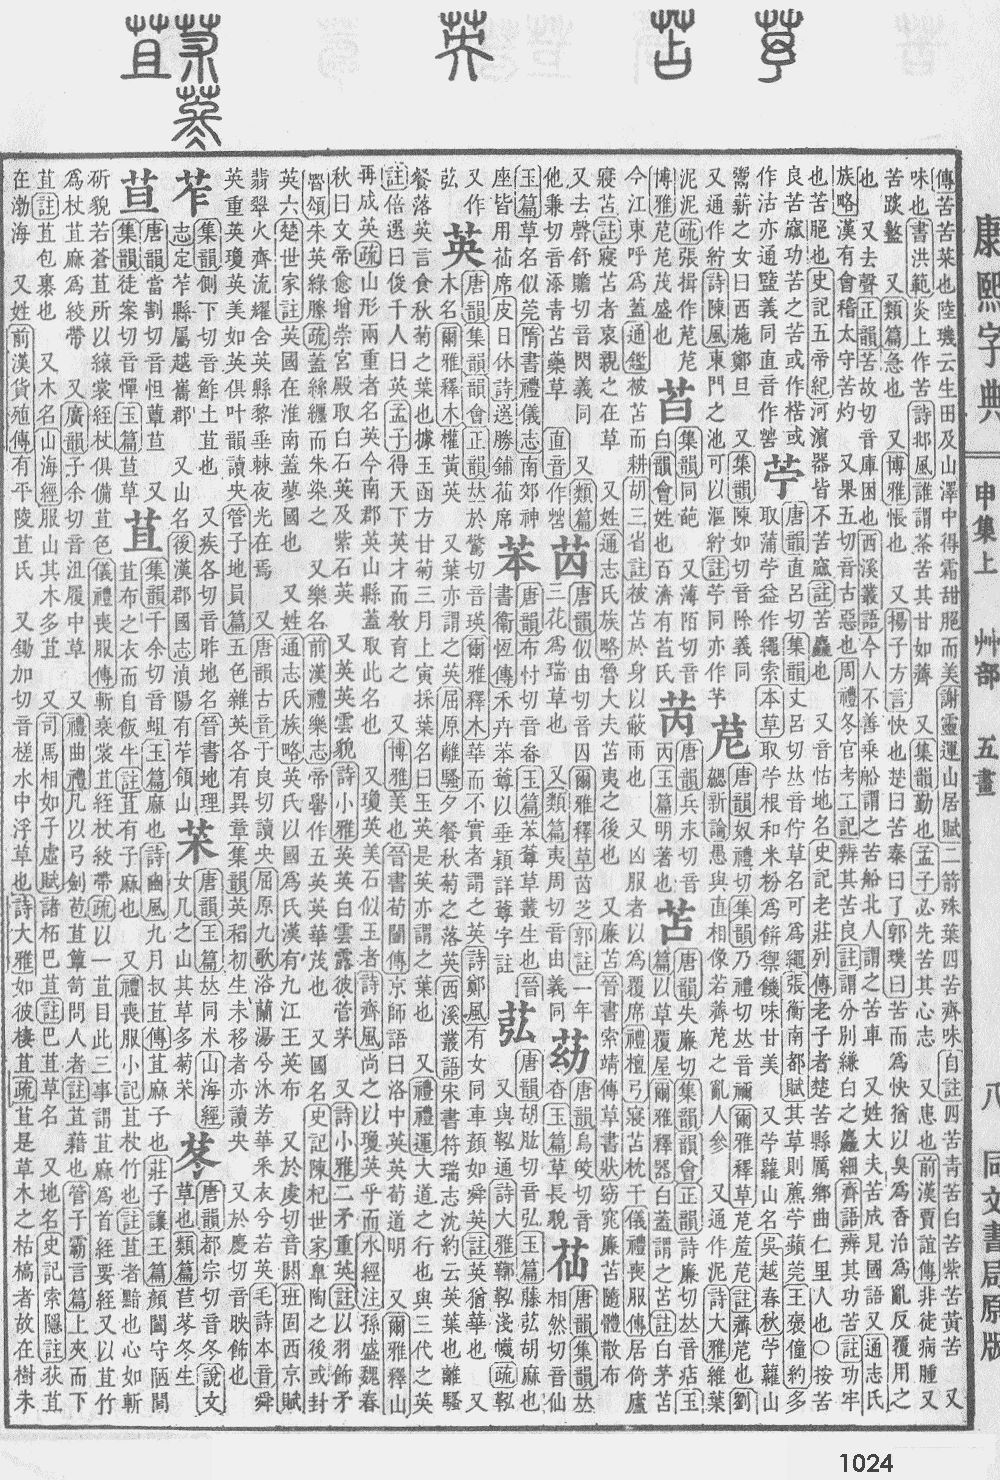 苧 苫 英 苴
康熙字典
申集上 艸部 五畫
八 同文書局原版
傳苦苦菜也陸璣云生田及山澤中得霜甜脆而美謝靈運山居賦二箭殊葉四苦齊味自註四苦青苦白苦紫苦黃苦 又
味也書洪範炎上作苦詩邶風誰謂荼苦其甘如薺 又集韻勤也孟子必先苦其心志 又患也前漢賈誼傳非徒病腫又
苦盭 又類篇急也 又博雅悵也 又揚子方言快也楚曰苦秦曰了郭璞曰苦而爲快猶以臭爲香治爲亂反覆用之
也 又去聲正韻苦故切音庫困也西溪叢語今人不善乘船謂之苦船北人謂之苦車 又姓大夫苦成見國語又通志氏
族略漢有會稽太守苦灼 又果五切音古惡也周禮冬官考工記辨其苦良註謂分別緣白之麤細齊語辨其功苦註功牢
也苦脆也史記五帝紀河濱器皆不苦窳註苦麤也 又音怙地名史記老莊列傳老子者楚苦縣厲鄉曲仁里人也○按苦
良苦窳功苦之苦或作楛或
作沽亦通盬義同直音作
苧
唐韻直呂切集韻丈呂切𠀤音佇草名可爲繩張衡南都賦其草則藨苧蘋莞王褒僮約多
取蒲苧益作繩索本草取苧根和米粉爲餅禦饑味甘美 又苧蘿山名吳越春秋苧蘿山
鬻薪之女曰西施鄭旦 又集韻陳如切音除義同
又通作紵詩陳風東門之池可以漚紵註苧同亦作芧
苨
唐韻奴禮切集韻乃禮切𠀤音禰爾雅釋草苨菧苨註薺苨也劉
勰新論愚與直相像若薺苨之亂人參 又通作泥詩大雅維葉
泥泥疏張揖作苨苨
博雅苨苨茂盛也
苩
集韻同葩 又薄陌切音
白韻會姓也百濟有苩氏
苪
唐韻兵永切音
丙玉篇明著也
苫
唐韻失廉切集韻韻會正韻詩廉切𠀤音痁玉
篇以草覆屋爾雅釋器白蓋謂之苫註白茅苫
今江東呼爲蓋通鑑被苫而耕胡三省註被苫於身以蔽雨也 又凶服者以爲覆席禮檀弓寢苫枕干儀禮喪服傳居倚廬
寢苫註寢苫者哀親之在草 又姓通志氏族略魯大夫苫夷之後也 又廉苫晉書索靖傳草書狀窈窕廉苫隨體散布
又去聲舒贍切音閃義同 又類篇
他兼切音添青苫藥草 直音作
苬
唐韻似由切音囚爾雅釋草苬芝郭註一年
三花爲瑞草也 又類篇夷周切音由義同
苭
唐韻烏皎切音
杳玉篇草長貌
苮
唐韻集韻𠀤
相然切音仙
玉篇草名似莞隋書禮儀志南郊神
座皆用苮席皮日休詩選勝鋪苮席
苯
唐韻布忖切音畚玉篇苯䔿草叢生也晉
書衞恆傳禾卉苯䔿以垂穎詳䔿字註
苰
唐韻胡肱切音弘玉篇藤苰胡麻也
又與鞃通詩大雅鞹鞃淺幭疏鞃
又作
英
唐韻集韻韻會正韻𠀤於驚切音瑛爾雅釋木華而不實者謂之英詩鄭風有女同車顏如舜英註英猶華也 又
木名爾雅釋木權黃英 又葉亦謂之英屈原離騷夕餐秋菊之落英西溪叢語宋書符瑞志沈約云英葉也離騷
餐落英言食秋菊之葉也據玉函方甘菊三月上寅採葉名曰玉英是英亦謂之葉也 又禮禮運大道之行也與三代之英
註倍選曰俊千人曰英孟子得天下英才而教育之 又博雅美也晉書荀闓傳京師語曰洛中英英荀道明 又爾雅釋山
再成英疏山形兩重者名英今南郡英山縣蓋取此名也 又瓊英美石似玉者詩齊風尚之以瓊英乎而水經注孫盛魏春
秋曰文帝愈增崇宮殿取白石英及紫石英 又英英雲貌詩小雅英英白雲露彼菅茅 又詩小雅二矛重英註以羽飾矛
魯頌朱英綠縢疏蓋絲纏而朱染之 又樂名前漢禮樂志帝嚳作五英英華茂也 又國名史記陳杞世家臯陶之後或封
英六楚世家註英國在淮南蓋蓼國也 又姓通志氏族略英氏以國爲氏漢有九江王英布 又於虔切音閼班固西京賦
翡翠火齊流耀含英縣黎垂棘夜光在焉 又唐韻古音于良切讀央屈原九歌浴蘭湯兮沐芳華采衣兮若英毛詩本音舜
英重英瓊英美如英俱叶韻讀央管子地員篇五色雜英各有異章集韻英稻初生未移者亦讀央 又於慶切音映飾也
苲
集韻側下切音鮓土苴也 又疾各切音昨地名晉書地理
志定苲縣屬越巂郡 又山名後漢郡國志滇陽有苲領山
苿
唐韻玉篇𠀤同朮山海經
女几之山其草多菊苿
苳
唐韻都宗切音冬說文
草也類篇苣苳冬生
苴
唐韻當割切音怛蕈苴 又
集韻徒案切音憚玉篇苴草
苴
集韻千余切音蛆玉篇麻也詩豳風九月叔苴傳苴麻子也莊子讓王篇顏闔守陋閭
苴布之衣而自飯牛註苴有子麻也 又禮喪服小記苴杖竹也註苴者黯也心如斬
斫貌若蒼苴所以縗裳絰杖俱備苴色儀禮喪服傳斬衰裳苴絰杖絞帶疏以一苴目此三事謂苴麻爲首絰要絰又以苴竹
爲杖苴麻爲絞帶 又廣韻子余切音沮履中草 又禮曲禮凡以弓劍苞苴簞笥問人者註苴藉也管子霸言篇上夾而下
苴註苴包裹也 又木名山海經服山其木多苴 又司馬相如子虛賦諸柘巴苴註巴苴草名 又地名史記索隱註荻苴
在渤海 又姓前漢貨殖傳有平陵苴氏 又鋤加切音槎水中浮草也詩大雅如彼棲苴疏苴是草木之枯槁者故在樹未
1024